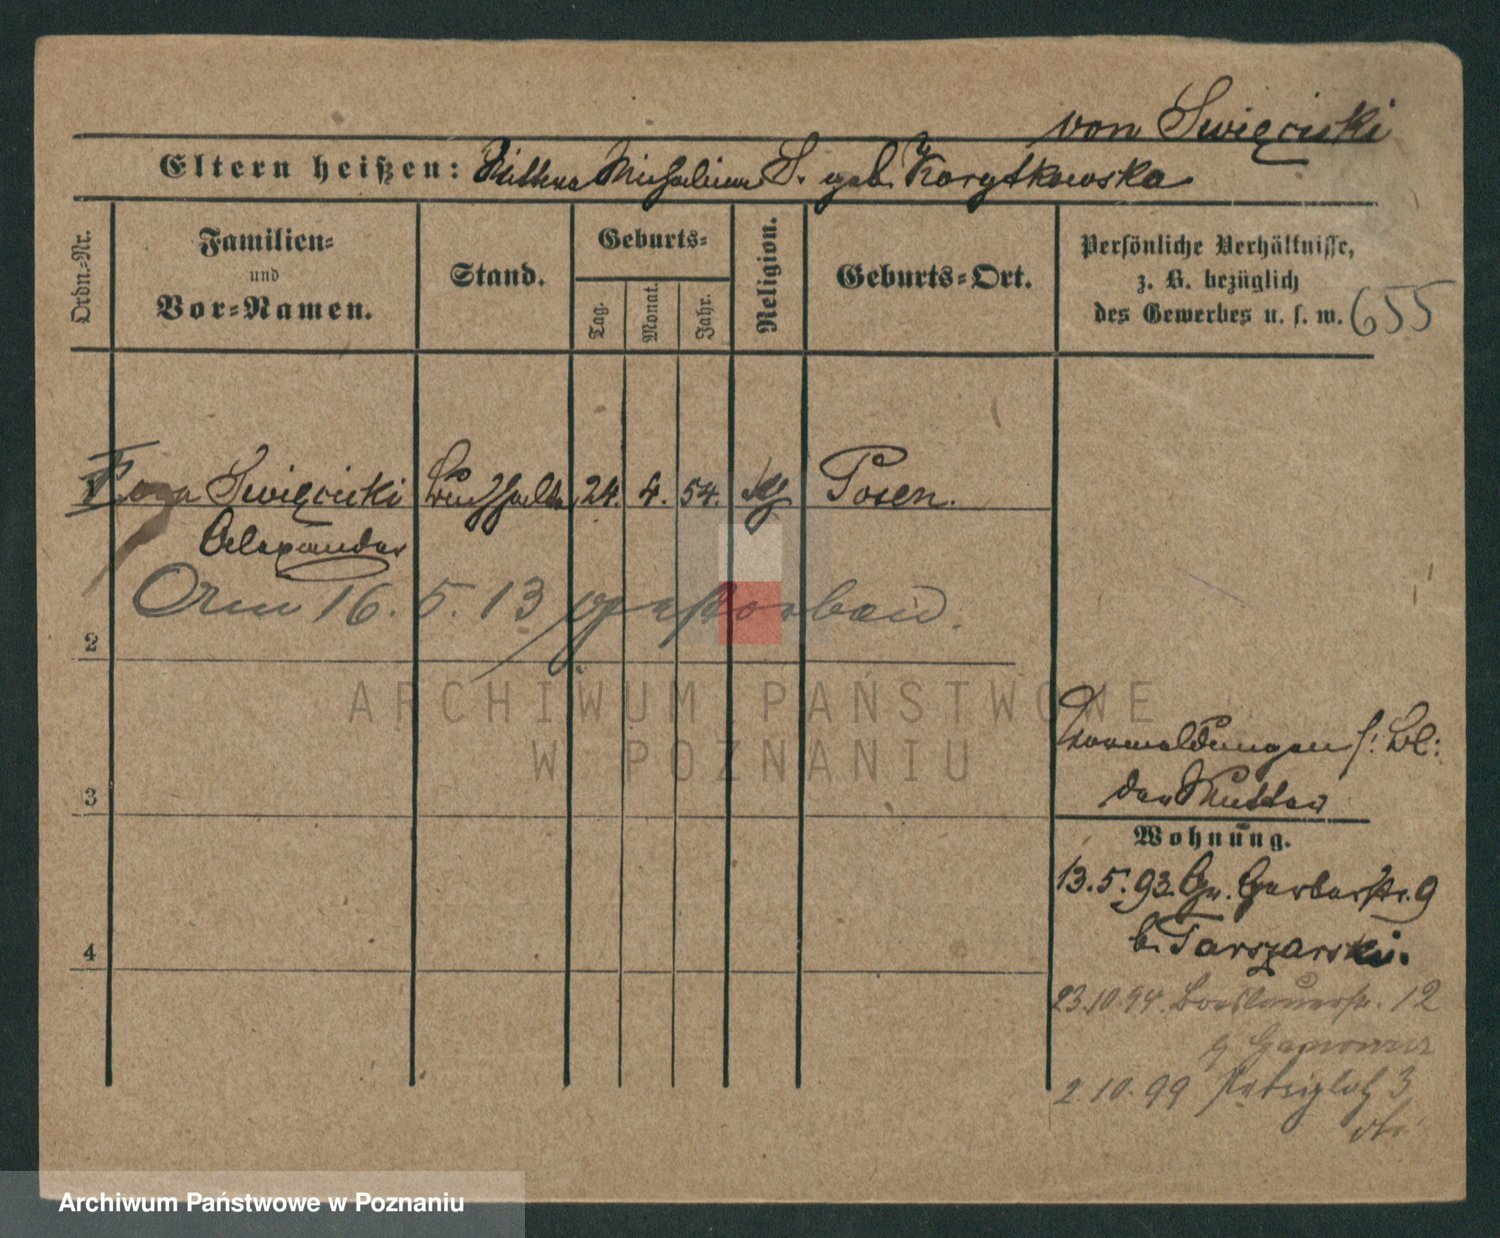 von Święcicki
Eltern heißen: Mutter Michalina S. geb. Korytkowska
Ordn.-Nr.
Familien-
und
Vor-Namen.
Stand.
Geburts-
Tag.
Monat.
Jahr.
Religion.
Geburts-Ort.
Persönliche Verhältnisse,
z. B. bezüglich
des Gewerbes u. s. w. 655
von Święcicki Buchhalter 24. 4. 54. Posen.
Alexander
Am 16. 5. 13 verstorben.
2
3
4
Vormeldungen s: Bl:
der Mutter
Wohnung.
13.5.93 Gr. Gerberstr. 9
b. Tarszarski.
23.10.94. Breslauerstr. 12
2.10.99 Petriplatz 3
ARCHIWUM PAŃSTWOWE
W POZNANIU
Archiwum Państwowe w Poznaniu